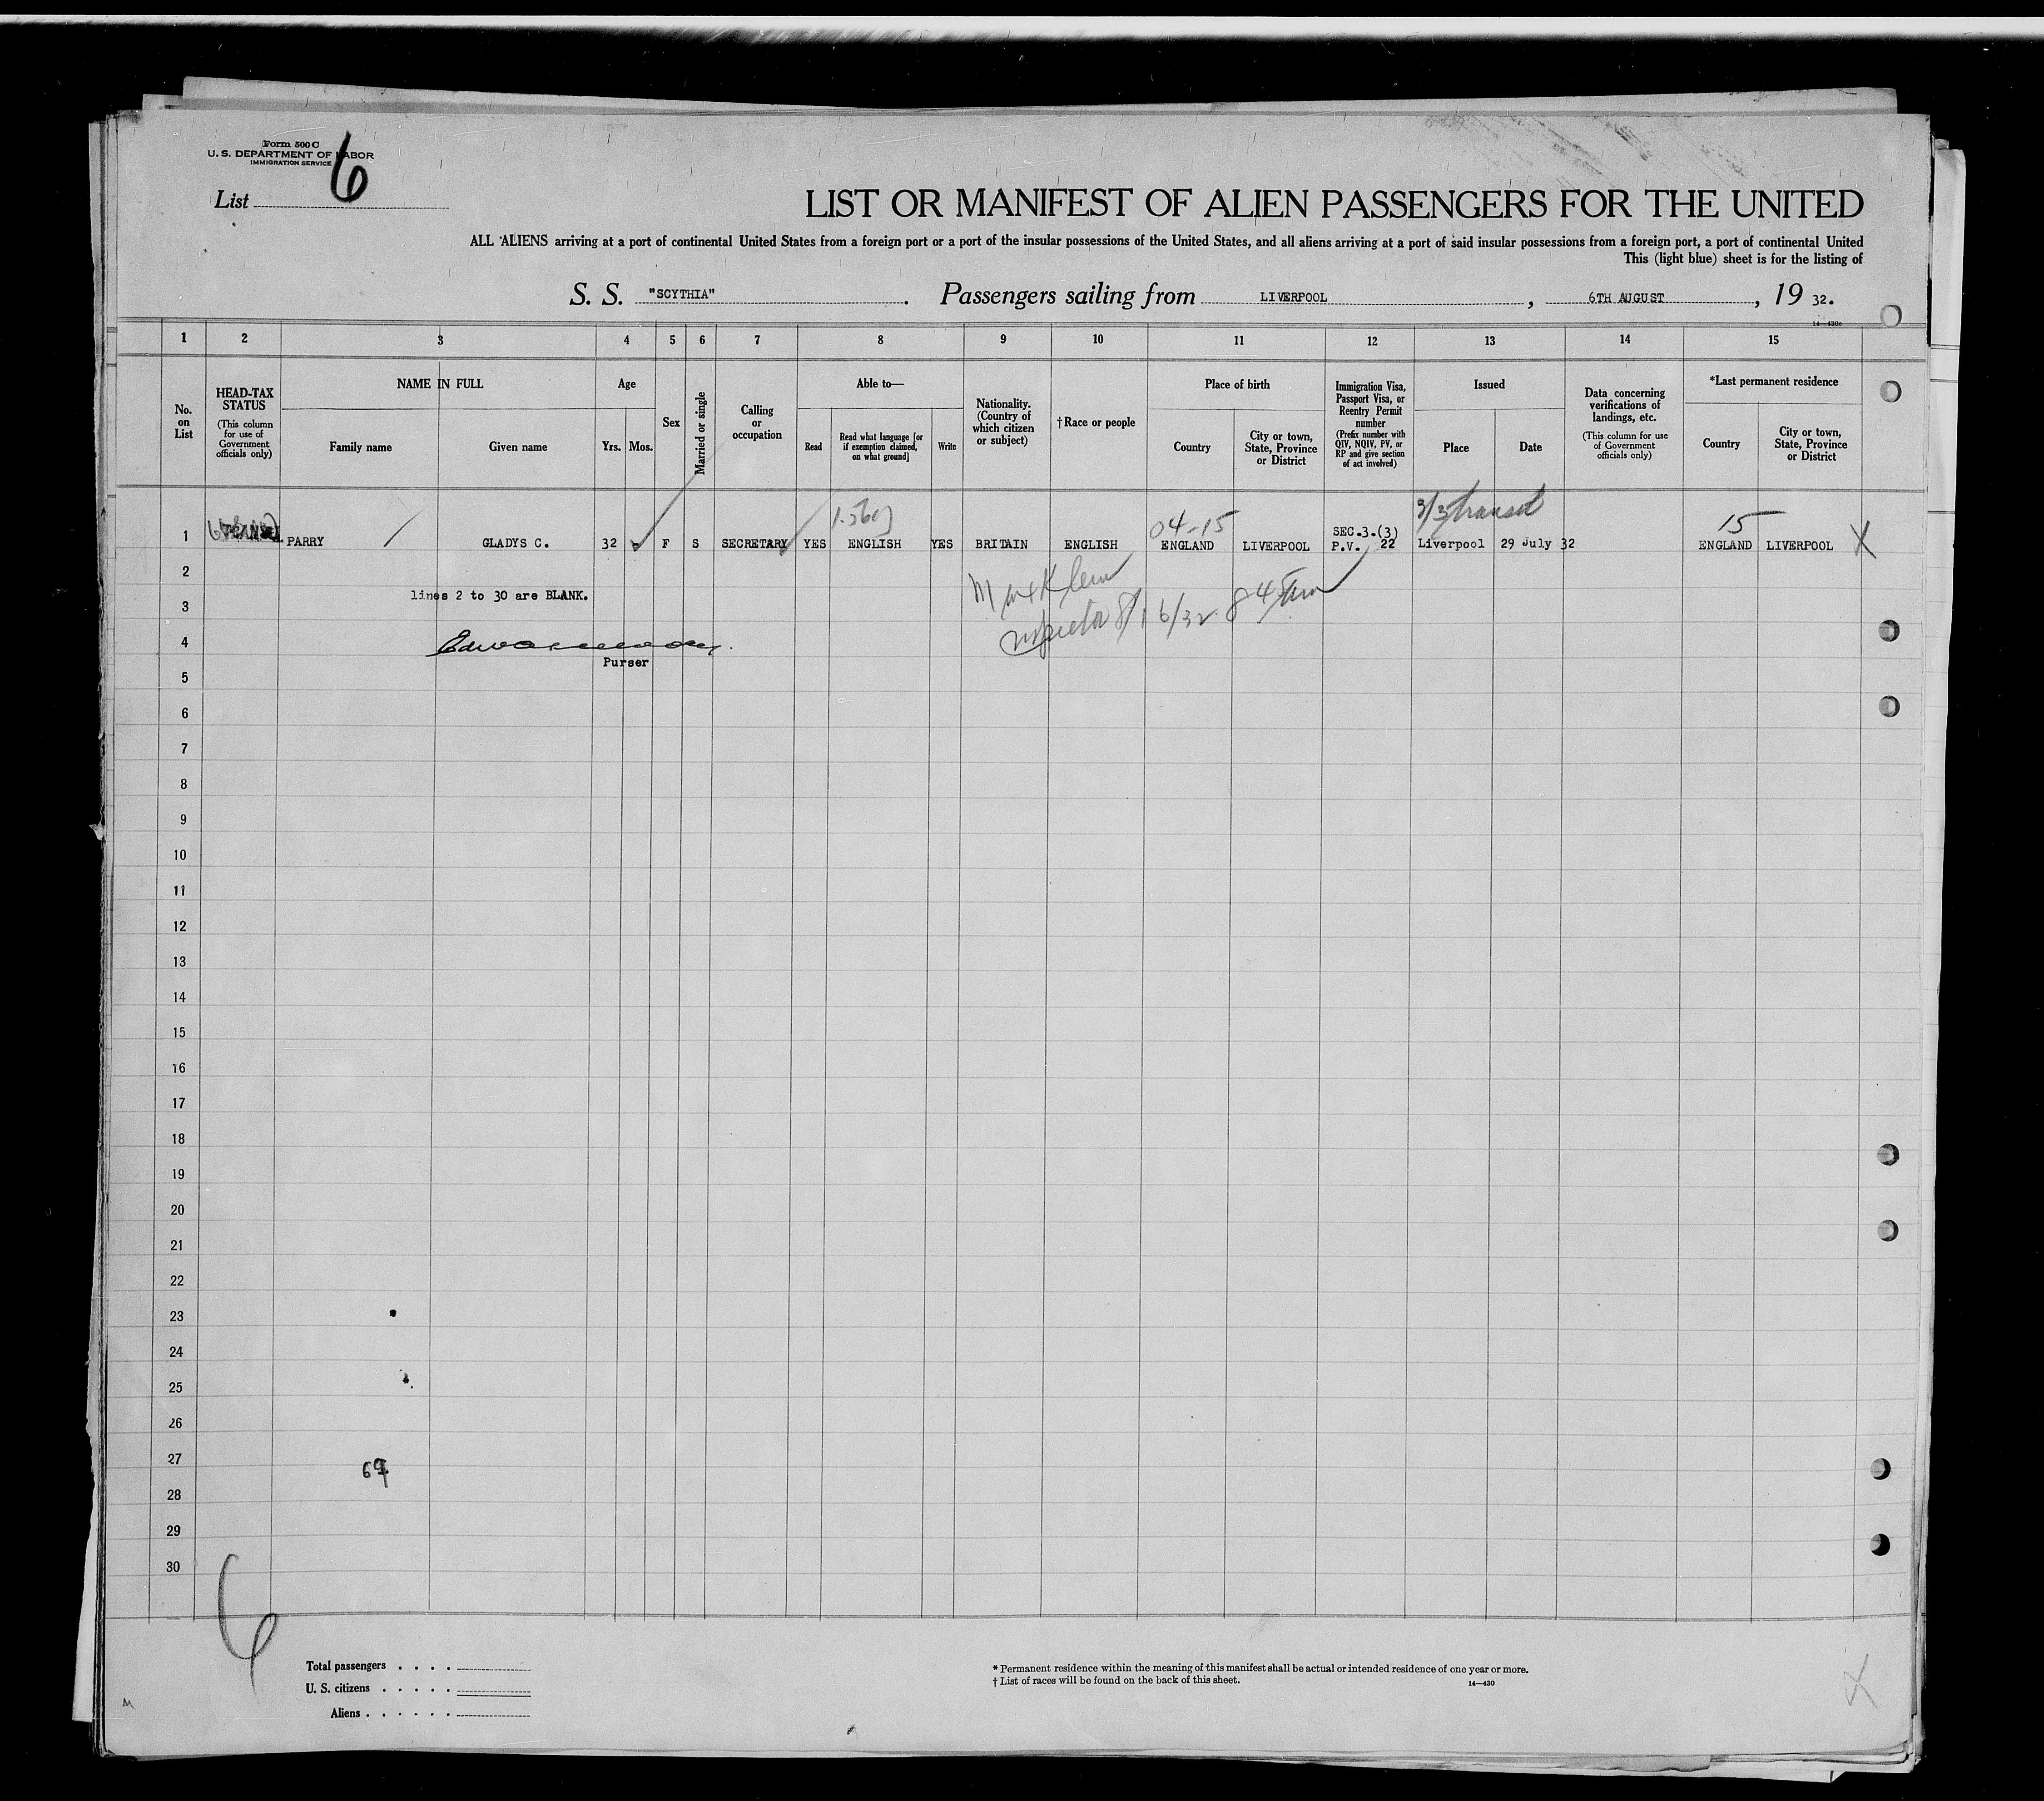 Form 500 C
U. S. DEPARTMENT OF LABOR
IMMIGRATION SERVICE
List 6
LIST OR MANIFEST OF ALIEN PASSENGERS FOR THE UNITED
ALL ALIENS arriving at a port of continental United States from a foreign port or a port of the insular possessions of the United States, and all aliens arriving at a port of said insular possessions from a foreign port, a port of continental United
This (light blue) sheet is for the listing of
S. S. "SCYTHIA". Passengers sailing from LIVERPOOL, 6TH AUGUST, 19 32.
14—430c
1 2 3 4 5 6 7 8 9 10 11 12 13 14 15
No. on List
HEAD-TAX STATUS
(This column for use of Government officials only)
NAME IN FULL
Family name
Given name
Age
Yrs. Mos.
Sex
Married or single
Calling or occupation
Able to—
Read
Read what language [or if exemption claimed, on what ground]
Write
Nationality. (Country of which citizen or subject)
†Race or people
Place of birth
Country
City or town, State, Province or District
Immigration Visa, Passport Visa, or Reentry Permit number
(Prefix number with QIV, NQIV, PV, or RP and give section of act involved)
Issued
Place
Date
Data concerning verifications of landings, etc.
(This column for use of Government officials only)
*Last permanent residence
Country
City or town, State, Province or District
04-15
3/3 transit
15
SEC.3.(3)
1 PARRY GLADYS C. 32 - F S SECRETARY YES ENGLISH YES BRITAIN ENGLISH ENGLAND LIVERPOOL P.V. 22 Liverpool 29 July 32 ENGLAND LIVERPOOL X
2
lines 2 to 30 are BLANK.
3
4
Purser
5
6
7
8
9
10
11
12
13
14
15
16
17
18
19
20
21
22
23
24
25
26
27
28
29
30
6
Total passengers . . . .
U. S. citizens . . . . .
Aliens . . . . . .
* Permanent residence within the meaning of this manifest shall be actual or intended residence of one year or more.
† List of races will be found on the back of this sheet.
14—430
X